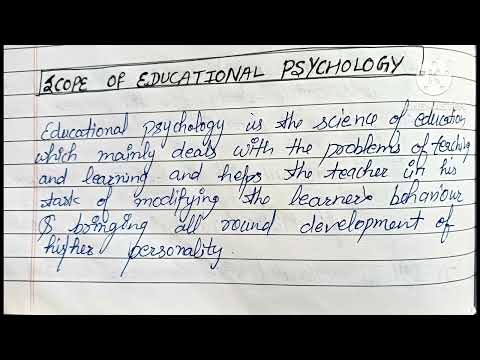 SCOPE OF EDUCATIONAL PSYCHOLOGY
Educational psychology is the science of education
which mainly deals with the problems of teaching
and learning and helps the teacher in his
task of modifying the learners behaviour
& bringing all round development of
his/her personality.